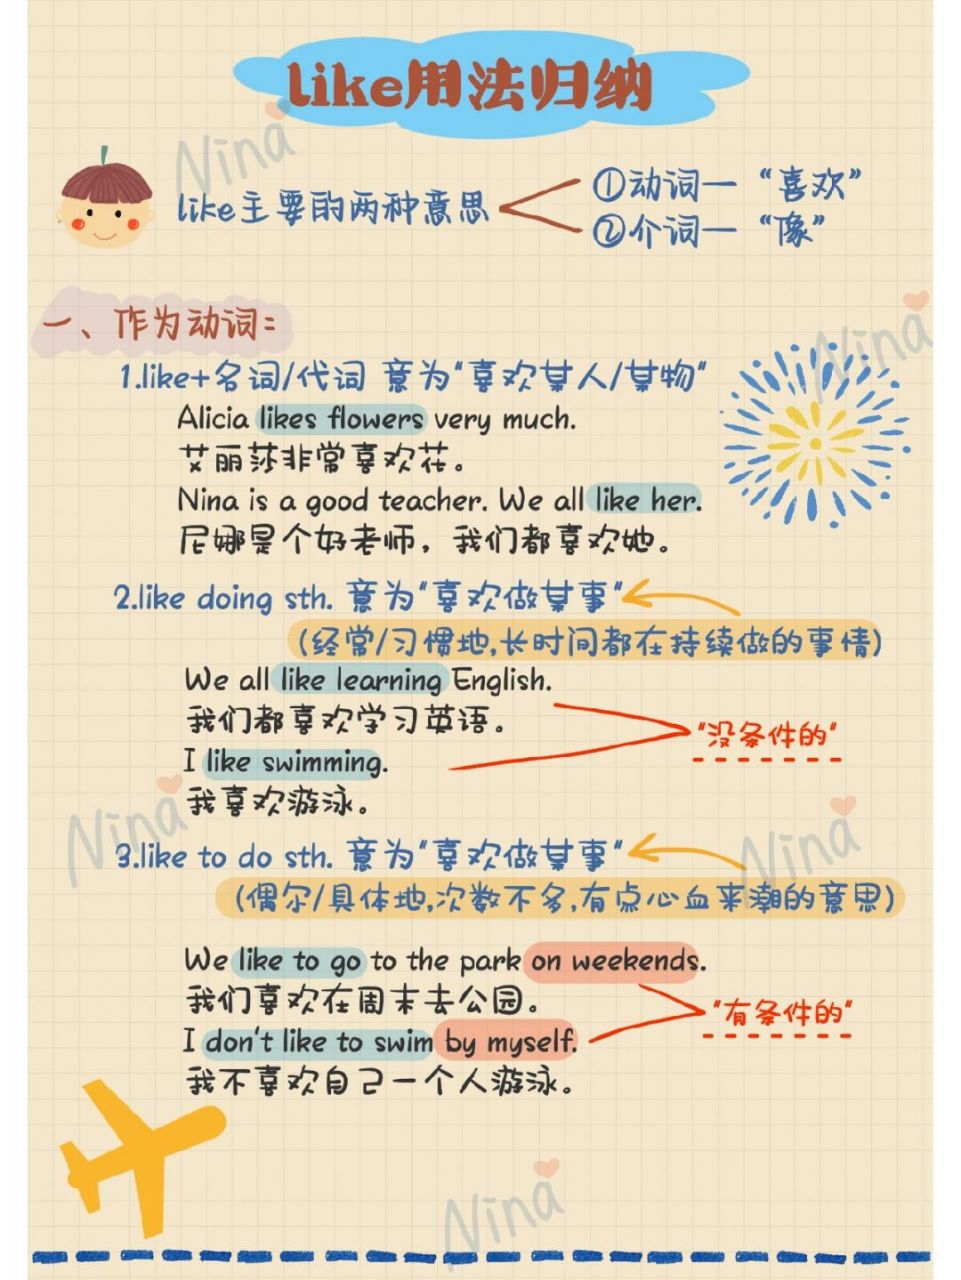 like用法归纳
like主要的两种意思
①动词—“喜欢”
②介词—“像”
一、作为动词:
1.like+名词/代词 意为"喜欢某人/某物"
Alicia likes flowers very much.
艾丽莎非常喜欢花。
Nina is a good teacher. We all like her.
尼娜是个好老师，我们都喜欢她。
2.like doing sth. 意为"喜欢做某事"
(经常/习惯地,长时间都在持续做的事情)
We all like learning English.
我们都喜欢学习英语。
"没条件的"
I like swimming.
我喜欢游泳。
3.like to do sth. 意为"喜欢做某事"
(偶尔/具体地,次数不多,有点心血来潮的意思)
We like to go to the park on weekends.
我们喜欢在周末去公园。
"有条件的"
I don't like to swim by myself.
我不喜欢自己一个人游泳。
Nina
Nina
Nina
Nina
Nina